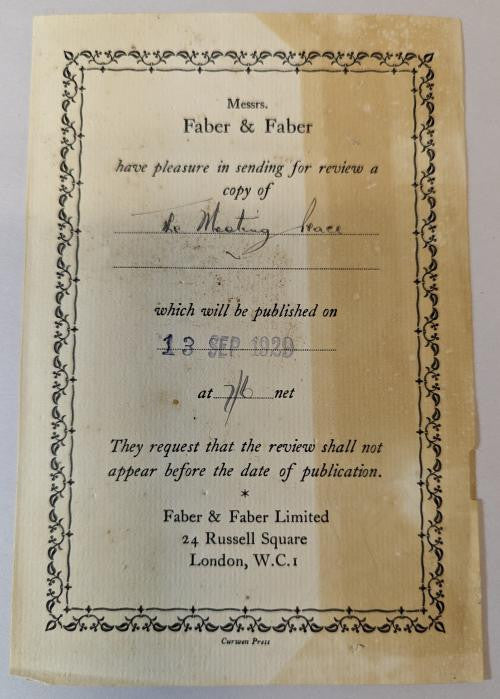 Messrs.
Faber & Faber
have pleasure in sending for review a
copy of
The Meeting Place
which will be published on
13 SEP 1929
at 7/6 net
They request that the review shall not
appear before the date of publication.
*
Faber & Faber Limited
24 Russell Square
London, W.C.1
Curwen Press